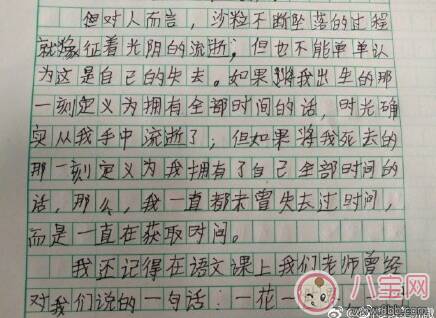 但对人而言，沙粒不断坠落的过程
就像征着光阴的流逝；但也不能单单认
为这是自己的失去。如果将我出生的那
一刻定义为拥有全部时间的话，时光确
实从我手中流逝了；但如果将我死去的
那一刻定义为我拥有了自己全部时间的
话，那么，我一直都未曾失去过时间，
而是一直在获取时间。
我还记得在语文课上我们老师曾经
对我们说的一句话：一花一
八宝网